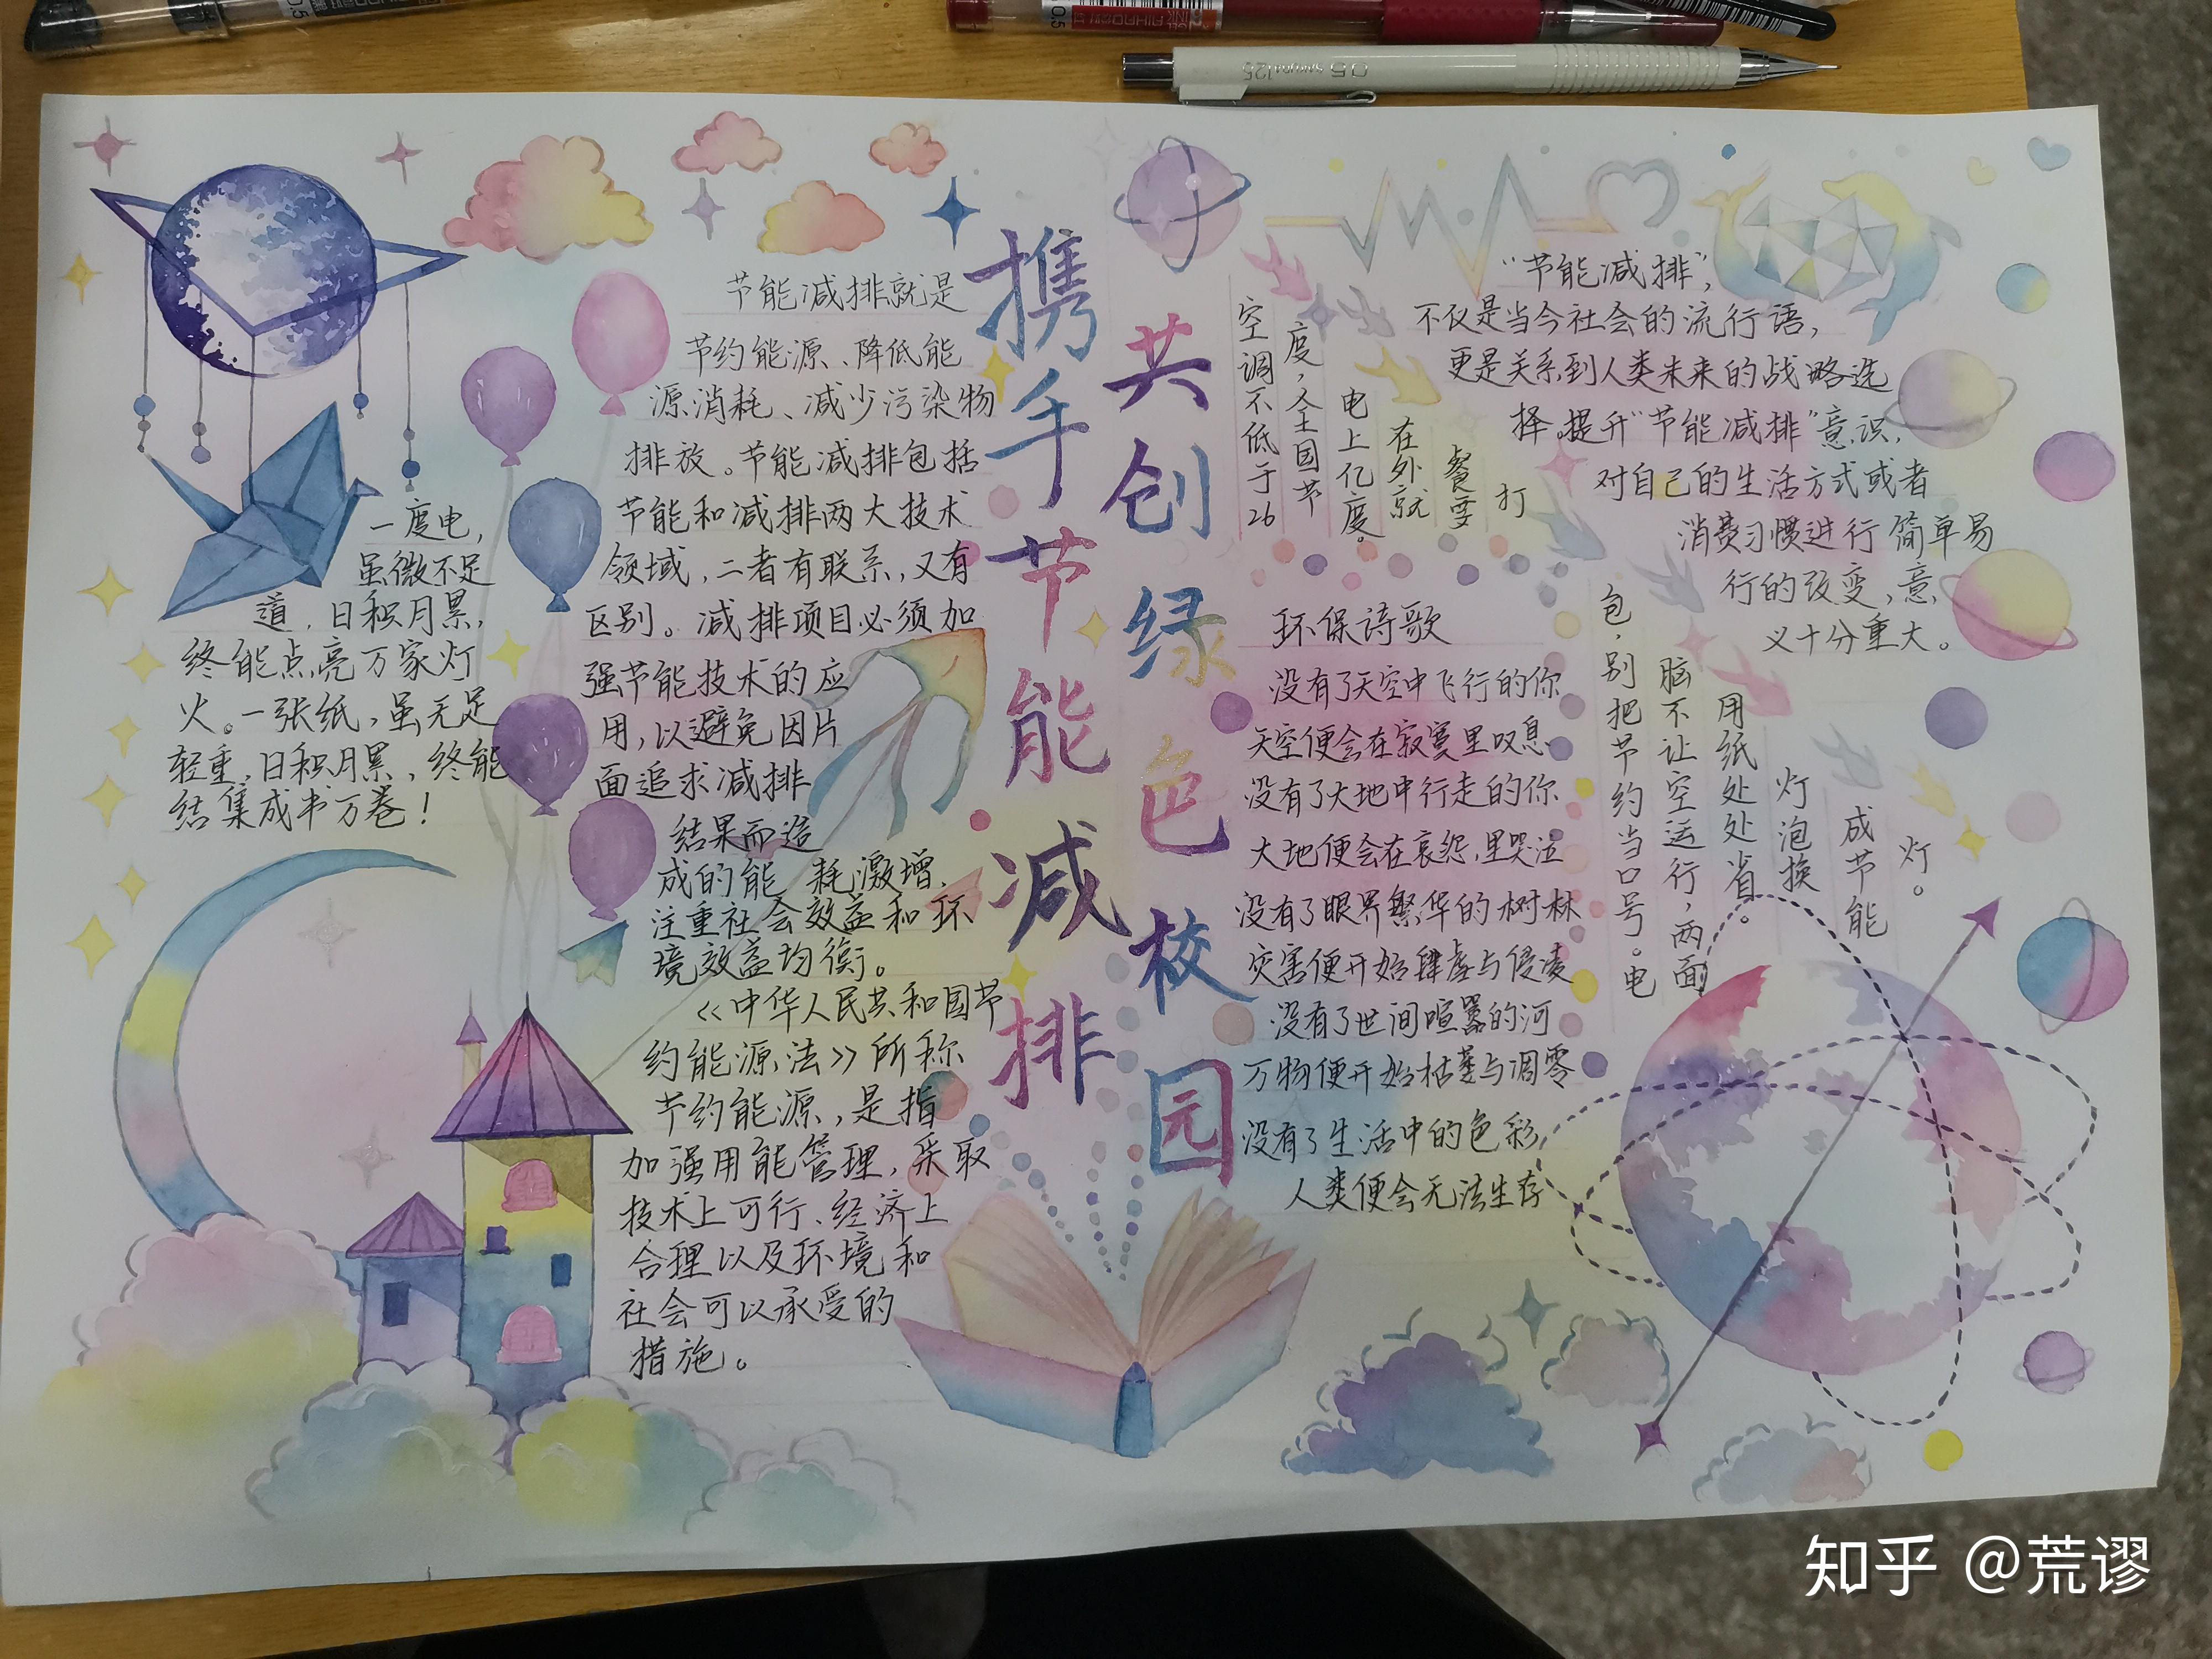 携手节能减排
共创绿色校园
一度电，
虽微不足
道，日积月累，
终能点亮万家灯
火。一张纸，虽无足
轻重，日积月累，终能
结集成书万卷！
节能减排就是
节约能源、降低能
源消耗、减少污染物
排放。节能减排包括
节能和减排两大技术
领域，二者有联系，又有
区别。减排项目必须加
强节能技术的应
用，以避免因片
面追求减排
结果而造
成的能 耗激增，
注重社会效益和环
境效益均衡。
《中华人民共和国节
约能源法》所称
节约能源，是指
加强用能管理，采取
技术上可行、经济上
合理以及环境和
社会可以承受的
措施。
空调不低于26
度，全国节
电上亿度。
在外就
餐要
打
包，别把节约当口号。电
脑不让空运行，两面
用纸处处省。
灯泡换
成节能
灯。
“节能减排”，
不仅是当今社会的流行语，
更是关系到人类未来的战略选
择。提升“节能减排”意识，
对自己的生活方式或者
消费习惯进行简单易
行的改变，意
义十分重大。
环保诗歌
没有了天空中飞行的你
天空便会在寂寞里叹息
没有了大地中行走的你
大地便会在哀怨里哭泣
没有了眼界繁华的树林
灾害便开始肆虐与侵凌
没有了世间喧嚣的河
万物便开始枯萎与凋零
没有了生活中的色彩
人类便会无法生存
知乎 @荒谬